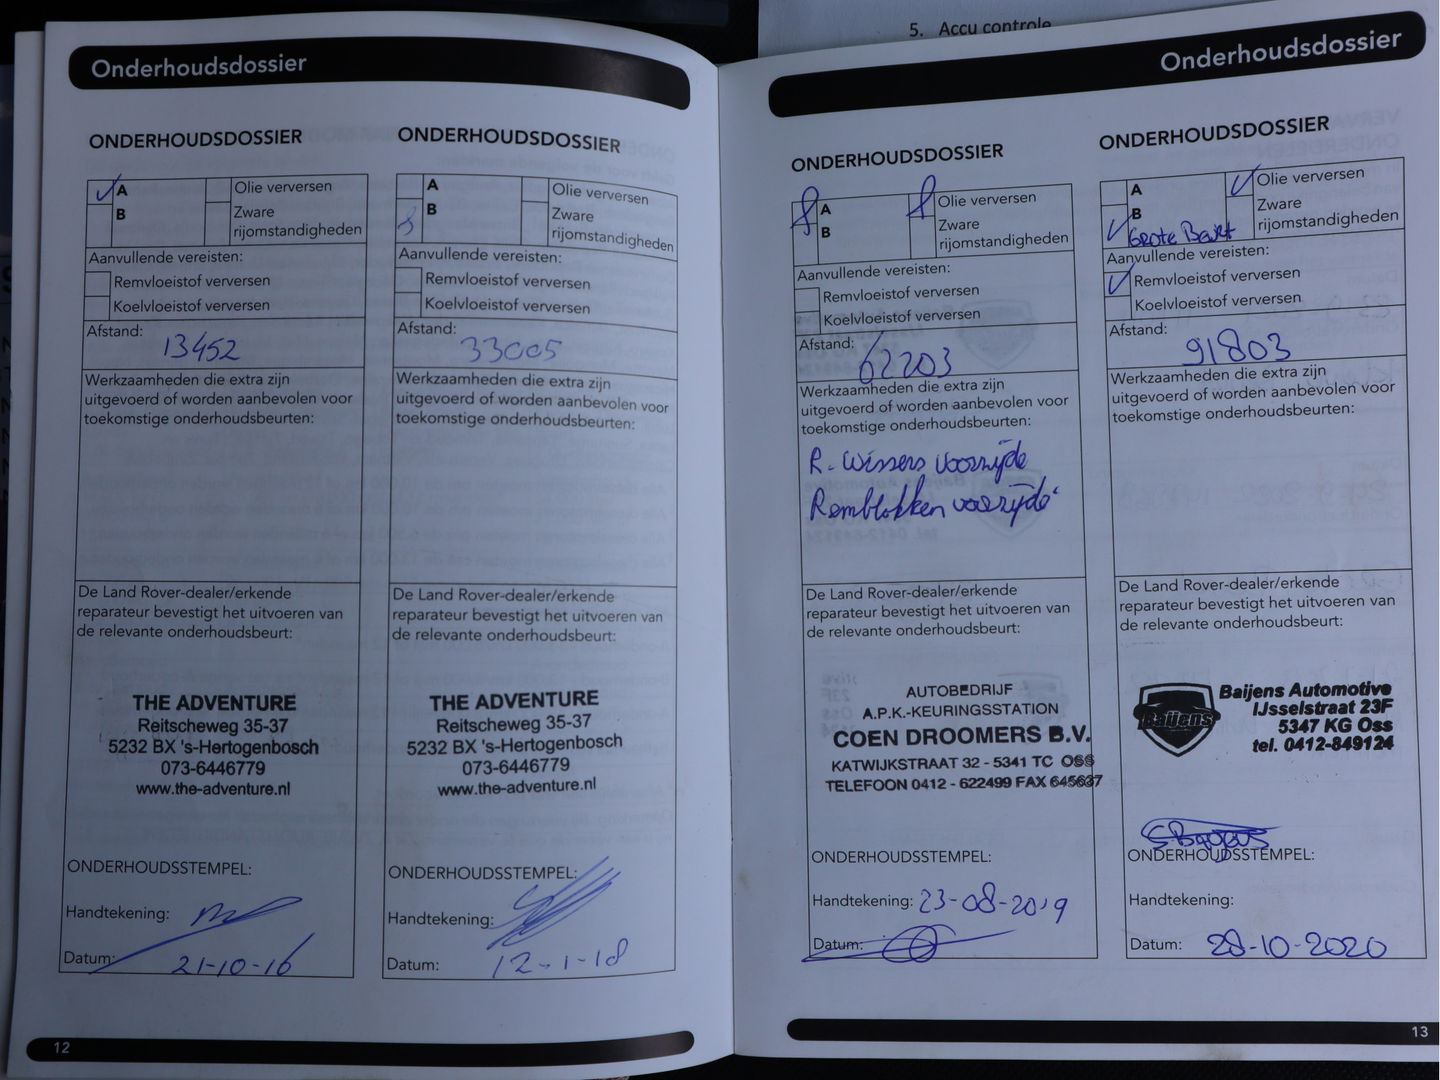 5. Accu controle
Onderhoudsdossier
ONDERHOUDSDOSSIER
A
B
Olie verversen
Zware
rijomstandigheden
Aanvullende vereisten:
Remvloeistof verversen
Koelvloeistof verversen
Afstand:
13452
Werkzaamheden die extra zijn
uitgevoerd of worden aanbevolen voor
toekomstige onderhoudsbeurten:
De Land Rover-dealer/erkende
reparateur bevestigt het uitvoeren van
de relevante onderhoudsbeurt:
THE ADVENTURE
Reitscheweg 35-37
5232 BX 's-Hertogenbosch
073-6446779
www.the-adventure.nl
ONDERHOUDSSTEMPEL:
Handtekening:
Datum: 21-10-16
ONDERHOUDSDOSSIER
A
B
Olie verversen
Zware
rijomstandigheden
Aanvullende vereisten:
Remvloeistof verversen
Koelvloeistof verversen
Afstand:
33005
Werkzaamheden die extra zijn
uitgevoerd of worden aanbevolen voor
toekomstige onderhoudsbeurten:
De Land Rover-dealer/erkende
reparateur bevestigt het uitvoeren van
de relevante onderhoudsbeurt:
THE ADVENTURE
Reitscheweg 35-37
5232 BX 's-Hertogenbosch
073-6446779
www.the-adventure.nl
ONDERHOUDSSTEMPEL:
Handtekening:
Datum: 12-1-18
12
Onderhoudsdossier
ONDERHOUDSDOSSIER
A
B
Olie verversen
Zware
rijomstandigheden
Aanvullende vereisten:
Remvloeistof verversen
Koelvloeistof verversen
Afstand:
62203
Werkzaamheden die extra zijn
uitgevoerd of worden aanbevolen voor
toekomstige onderhoudsbeurten:
R. wissers voorzijde
Remblokken voorzijde
De Land Rover-dealer/erkende
reparateur bevestigt het uitvoeren van
de relevante onderhoudsbeurt:
AUTOBEDRIJF
A.P.K.-KEURINGSSTATION
COEN DROOMERS B.V.
KATWIJKSTRAAT 32 - 5341 TC OSS
TELEFOON 0412 - 622499 FAX 645637
ONDERHOUDSSTEMPEL:
Handtekening: 23-08-2019
Datum:
ONDERHOUDSDOSSIER
A
B
Grote Beurt
Olie verversen
Zware
rijomstandigheden
Aanvullende vereisten:
Remvloeistof verversen
Koelvloeistof verversen
Afstand:
91803
Werkzaamheden die extra zijn
uitgevoerd of worden aanbevolen voor
toekomstige onderhoudsbeurten:
De Land Rover-dealer/erkende
reparateur bevestigt het uitvoeren van
de relevante onderhoudsbeurt:
Baijens
Baijens Automotive
IJsselstraat 23F
5347 KG Oss
tel. 0412-849124
ONDERHOUDSSTEMPEL:
Handtekening:
Datum: 28-10-2020
13